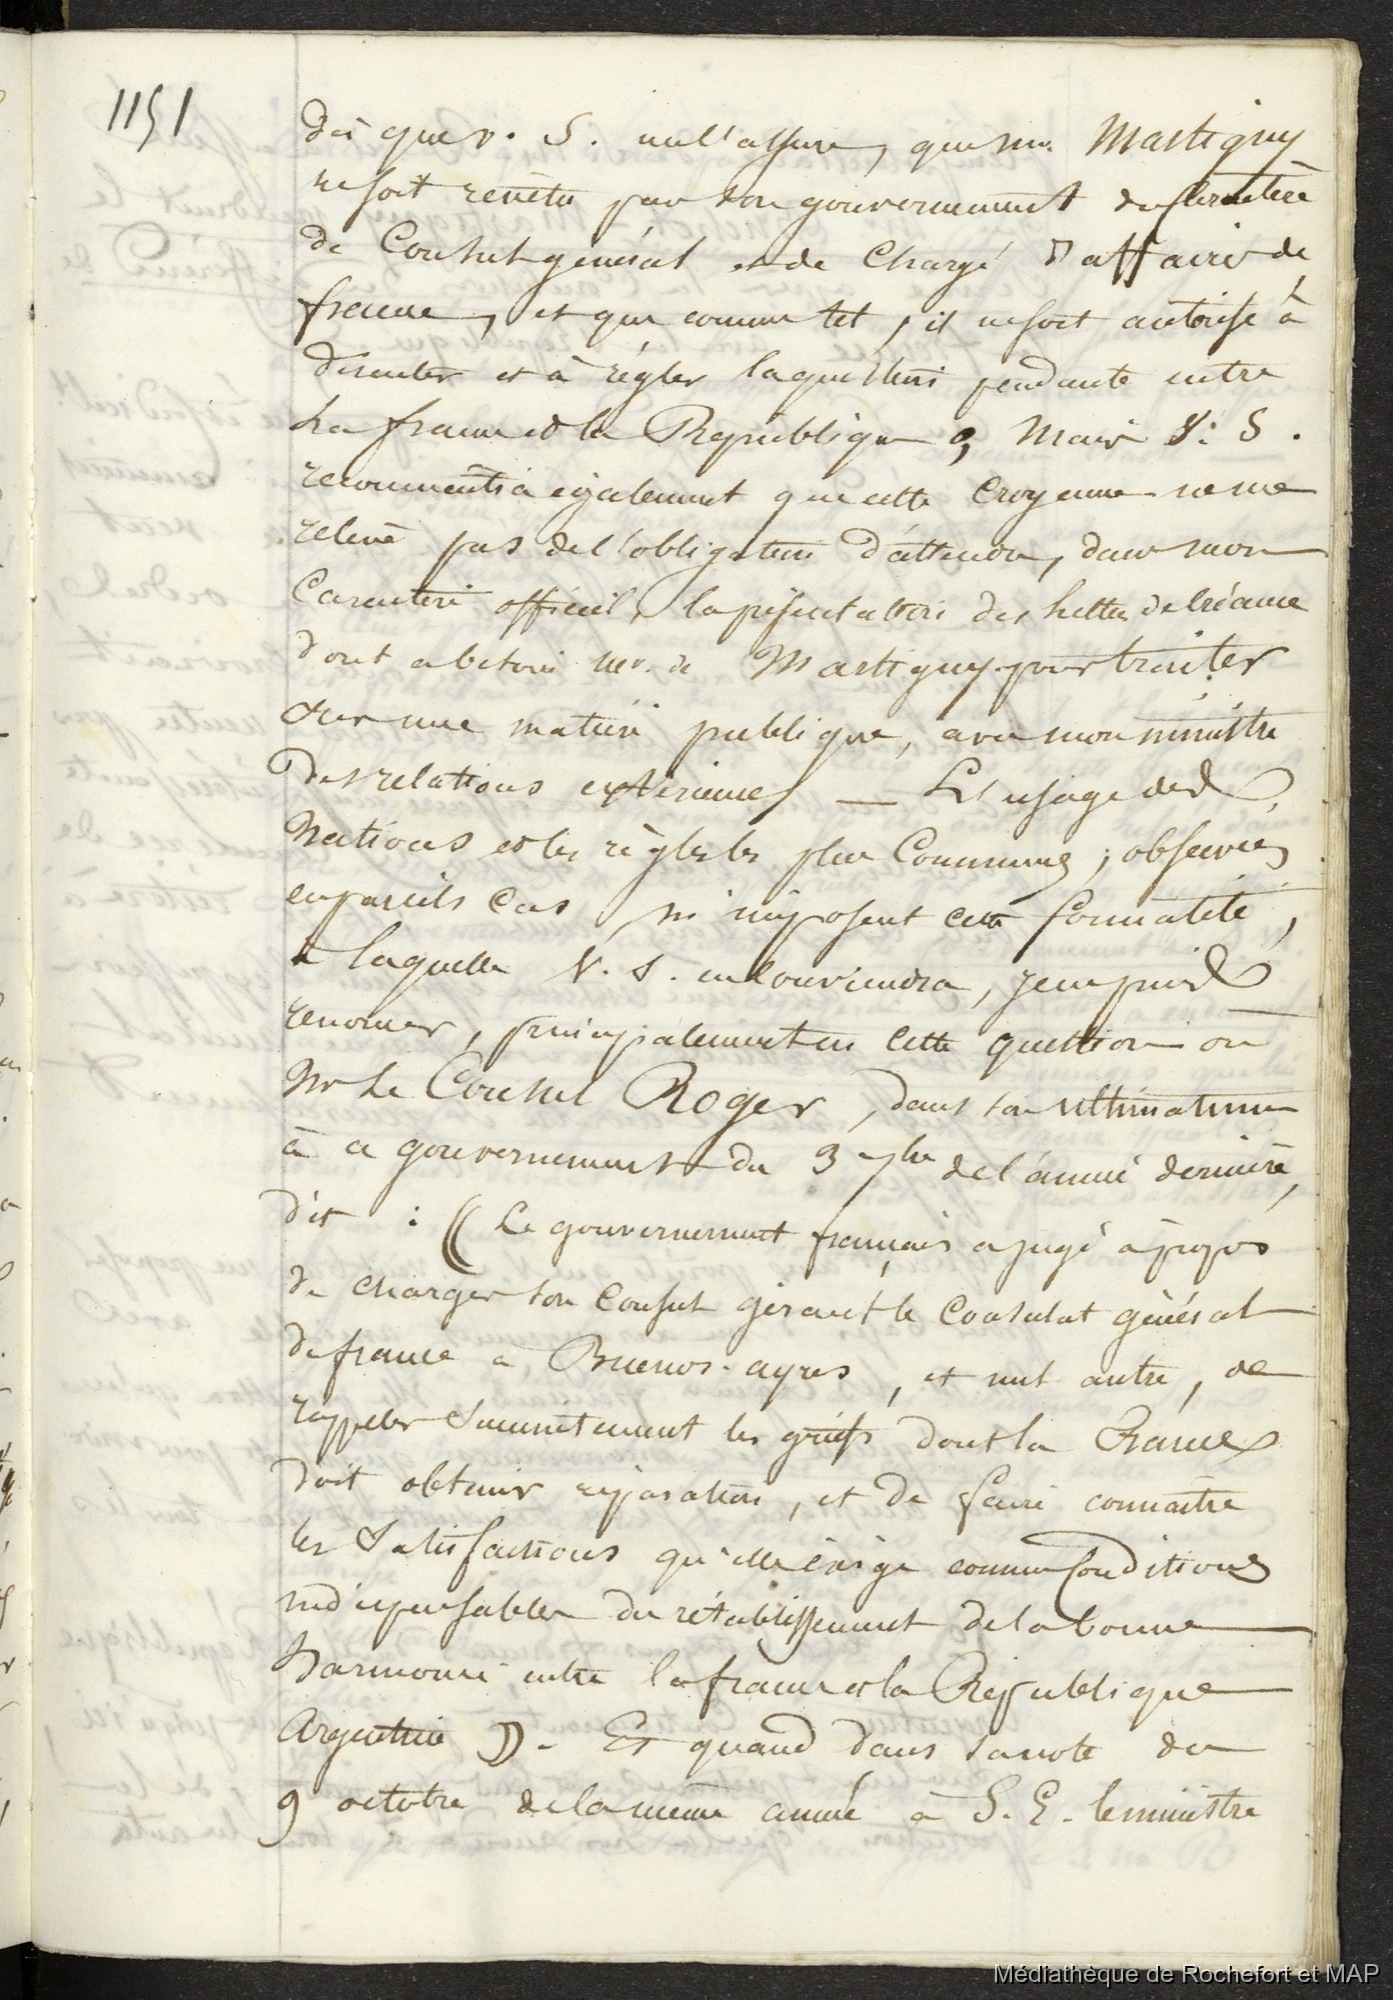 1151
dès que V. S. me l'assure, que Mr. Martigny
ne soit revêtu par son gouvernement du Caractère
de Consul général et de Chargé d'affaires de
france, et que comme tel, il ne soit autorisé à
discuter et à régler la question pendante entre
La france et la République, Mais V. S.
reconnaitra également que cette Croyance ne me
relève pas de l'obligation d'attendre, dans mon
Caractère officiel, la présentation des lettres de Créance
dont a besoin Mr. de Martigny pour traiter
sur une matière publique, avec mon ministre
Des relations extérieures — L'usage des
Nations et les règles les plus Communes, observées
en pareils Cas, m'imposent cette formalité,
à laquelle V. S. en Conviendra, je ne puis
renoncer, principalement en cette question où
Mr Le Consul Roger, dans son ultimatum
à ce gouvernement du 3 7bre de l'année dernière,
dit : (( Le gouvernement français a jugé à propos
de charger son Consul gérant le Consulat général
de france à Buenos-ayres, et nul autre, de
rappeler Succinctement les griefs dont la France
doit obtenir réparation, et de faire connaître
les Satisfactions qu'elle éxige comme Conditions
indispensables du rétablissement de la bonne
Harmonie entre la france et la République
Argentine )). Et quand dans sa note du
9 octobre de la même année à S. E. le ministre
Médiathèque de Rochefort et MAP